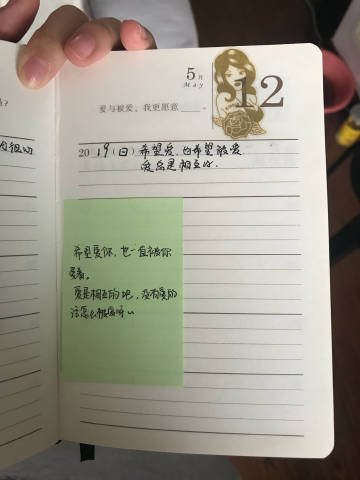 5月
May
12
爱与被爱，我更愿意____。
2019(日) 希望爱，也希望被爱
爱总是相互的.
希望爱你，也一直被你
爱着。
爱是相互的吧，没有爱的
话怎么被爱呀~